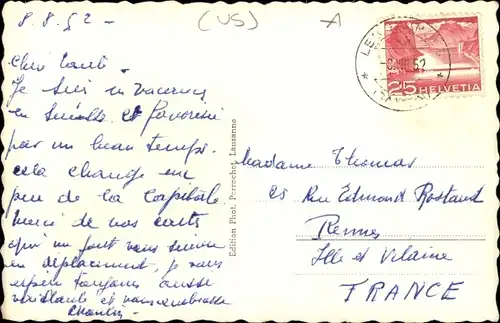 8.8.52 –
(US)
A
Je suis en vacances
et favorisée
par un beau temps.
cela change un
peu de la capitale
merci de vos cartes
qui me font vous suivre
en déplacement je vous
espère toujours aussi
et vous embrasse
Edition Phot. Perrochet, Lausanne
52
25 HELVETIA
Madame Thomas
25 Rue Edmond Rostand
Rennes
Ille et Vilaine
FRANCE